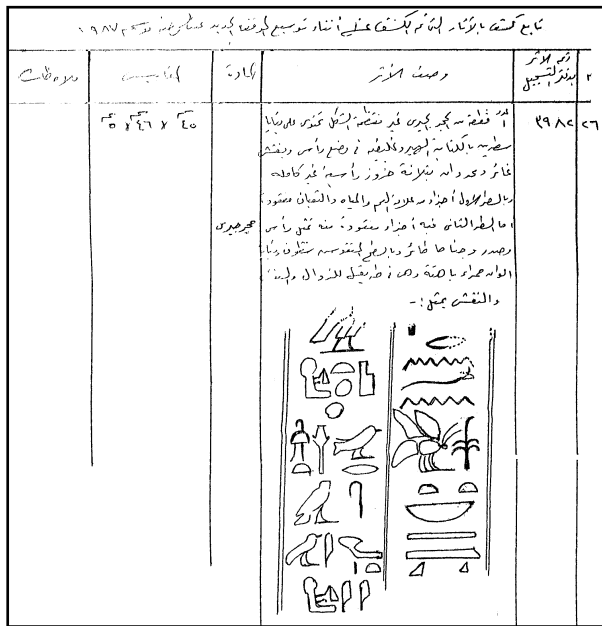 تابع كشف بالآثار التى تم الكشف عنها أثناء توسيع الموقف الجديد موسم ١٩٨٧
م
رقم الأثر بدفتر التسجيل
وصف الأثر
المادة
المقاييس
ملاحظات
٢٦
٣٩٨٢
قطعة من حجر جيرى غير منتظمة الشكل تحتوى على بقايا
سطرين بالكتابة الهيروغليفية فى وضع رأسى وبنقش
غائر ومحددان بثلاثة خزوز رأسية غير كاملة
وبالسطر الأول أجزاء من علامة الفم والمياه والثعبان مفقودة
أما السطر الثانى فبه أجزاء مفقودة منه تمثل رأس
وصدر وجناحا طائر وبالسطح المنقوش بقايا
ألوان حمراء باهتة وهى فى طريقها للزوال
والنقش يمثل :-
حجر جيرى
٤٥ × ٤٦ × ٥